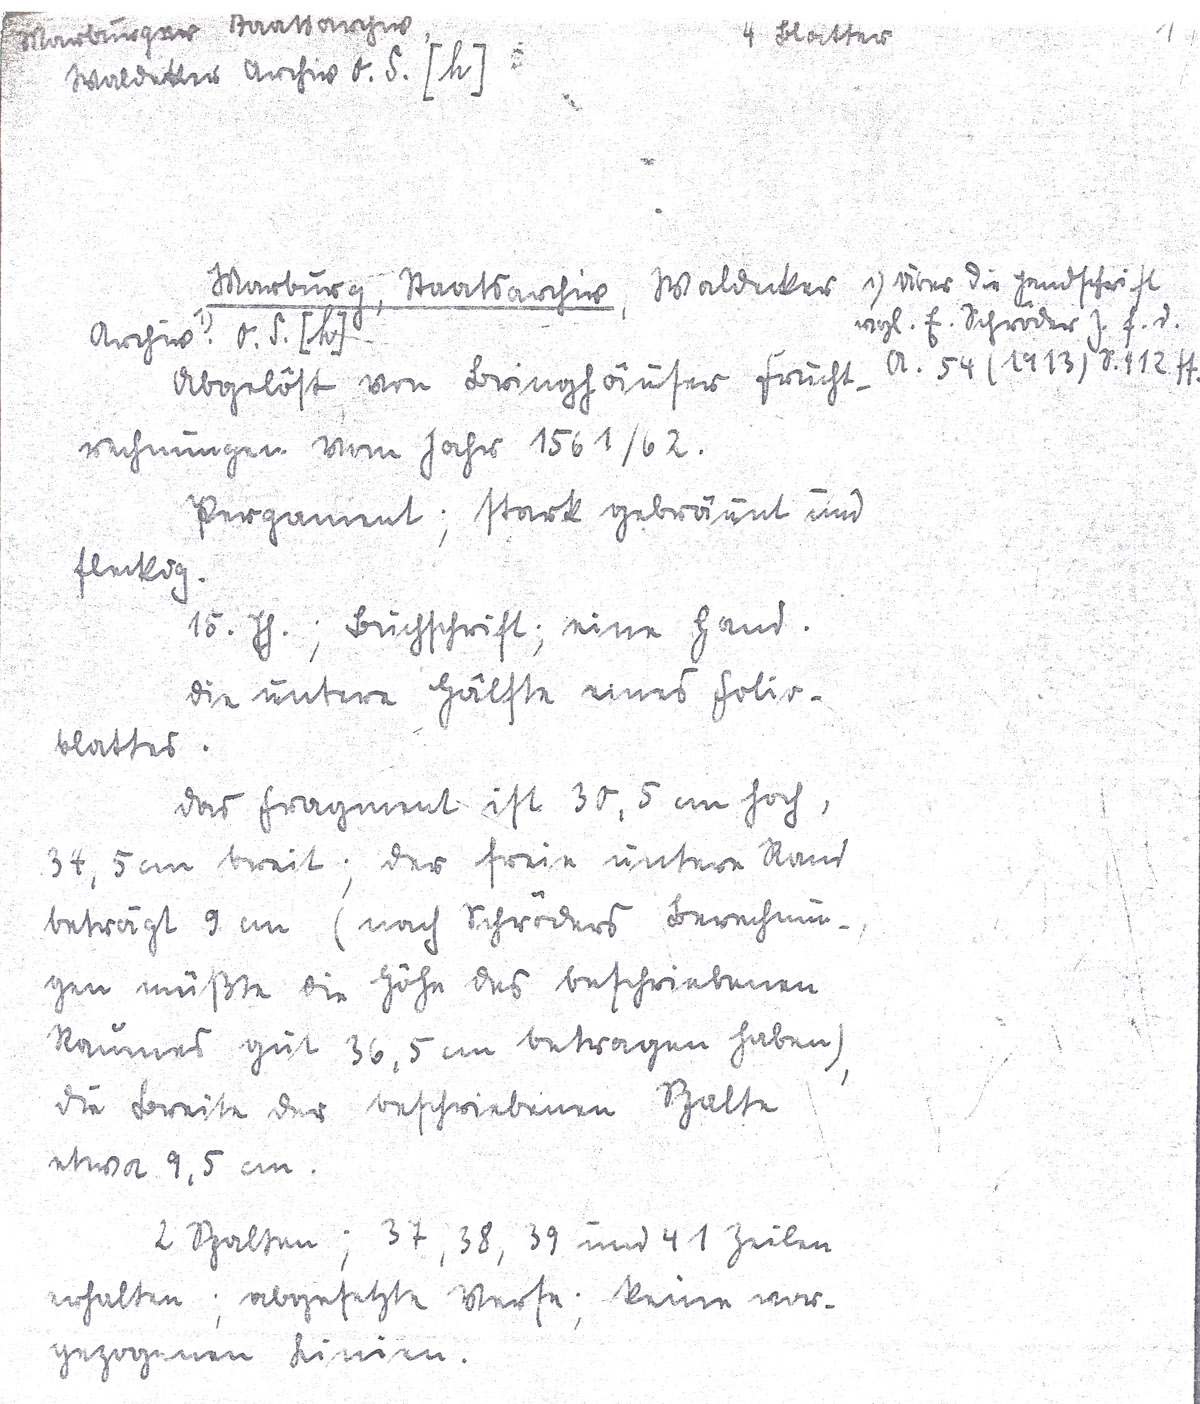 Marburger Staatsarchiv,
4 Blätter
1
Waldecker Archiv o. S. [h]
Marburg, Staatsarchiv, Waldecker
Archiv¹⁾. o. S. [h]
1) Über die Handschrift
vgl. E. Schröder Z. f. d.
A. 54 (1913) S. 412 ff.
Abgelöst von Bringhäuser Frucht-
rechnungen vom Jahr 1561/62.
Pergament; stark gebräunt und
fleckig.
15. Jh.; Buchschrift; eine Hand.
die untere Hälfte eines Folio-
blattes.
das Fragment ist 30,5 cm hoch,
34,5 cm breit; der freie untere Rand
beträgt 9 cm (nach Schröders Berechnun-
gen müßte die Höhe des beschriebenen
Raumes gut 36,5 cm betragen haben),
die Breite der beschriebenen Spalte
etwa 9,5 cm.
2 Spalten; 37, 38, 39 und 41 Zeilen
erhalten; abgesetzte Verse; keine vor-
gezogenen Linien.